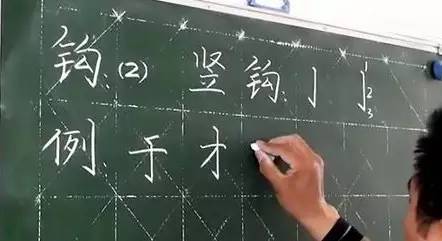 钩:(2) 竖钩:亅 亅1 2 3
例:于才